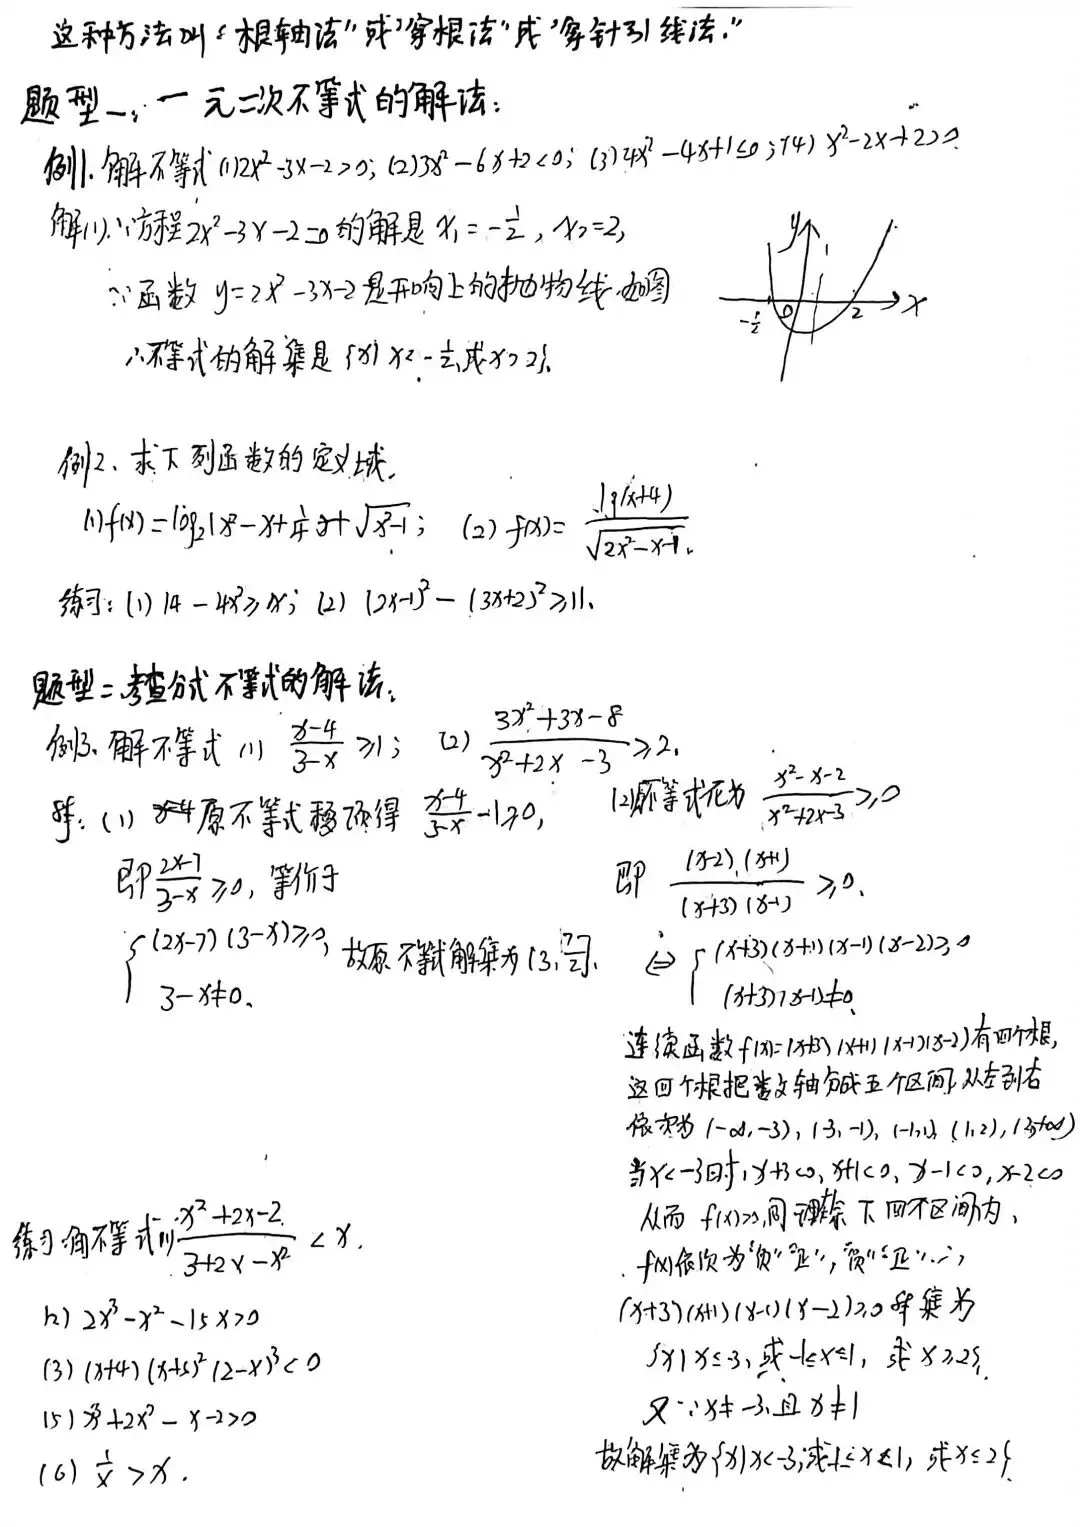 这种方法叫“根轴法”或“穿根法”或“穿针引线法.”
题型一:一元二次不等式的解法:
例1.解不等式(1)2x²-3x-2>0; (2)3x²-6x+2<0; (3)4x²-4x+1≤0; (4) x²-2x+2>0.
解(1).∵方程2x²-3x-2=0的解是x₁=-1/2, x₂=2,
∵函数 y=2x²-3x-2是开口向上的抛物线.如图
∴不等式的解集是{x|x<-1/2,或x>2}.
y
-1/2 0 2 x
例2、求下列函数的定义域.
(1)f(x)=log₂(x²-x+1/4)+√(x²-1); (2) f(x)= lg(x+4)/√(2x²-x-1).
练习:(1)14-4x²≥x; (2) (2x-1)²-(3x+2)²≥11.
题型二:考查分式不等式的解法.
例3.解不等式 (1) (x-4)/(3-x) ≥1; (2) (3x²+3x-8)/(x²+2x-3) ≥2.
解:(1) 原不等式移项得 (x-4)/(3-x) -1≥0,
即 (2x-7)/(3-x) ≥0, 等价于
{(2x-7)(3-x)≥0,
3-x≠0.
故原不等式解集为(3,7/2].
(2)原不等式化为 (x²-x-2)/(x²+2x-3) ≥0
即 (x-2)(x+1)/(x+3)(x-1) ≥0.
⇔ {(x+3)(x+1)(x-1)(x-2)≥0
(x+3)(x-1)≠0.
连续函数f(x)=(x+3)(x+1)(x-1)(x-2)有四个根,
这四个根把数轴分成五个区间,从左到右
依次为(-∞,-3),(-3,-1),(-1,1),(1,2),(2,+∞)
当x<-3时,x+3<0, x+1<0, x-1<0, x-2<0
从而 f(x)>0,同理 下四个区间内,
f(x)依次为“负”“正”,“负”“正”.∴,
(x+3)(x+1)(x-1)(x-2)≥0解集为
{x|x≤-3,或-1≤x≤1, 或x≥2}.
又∵x≠-3,且x≠1
故解集为{x|x<-3,或-1≤x<1, 或x≤2}.
练习.解不等式(1) (x²+2x-2)/(3+2x-x²) < x.
(2) 2x³-x²-15x>0
(3) (x+4)(x+5)²(2-x)³<0
(5) x³+2x²-x-2>0
(6) 1/x >x.